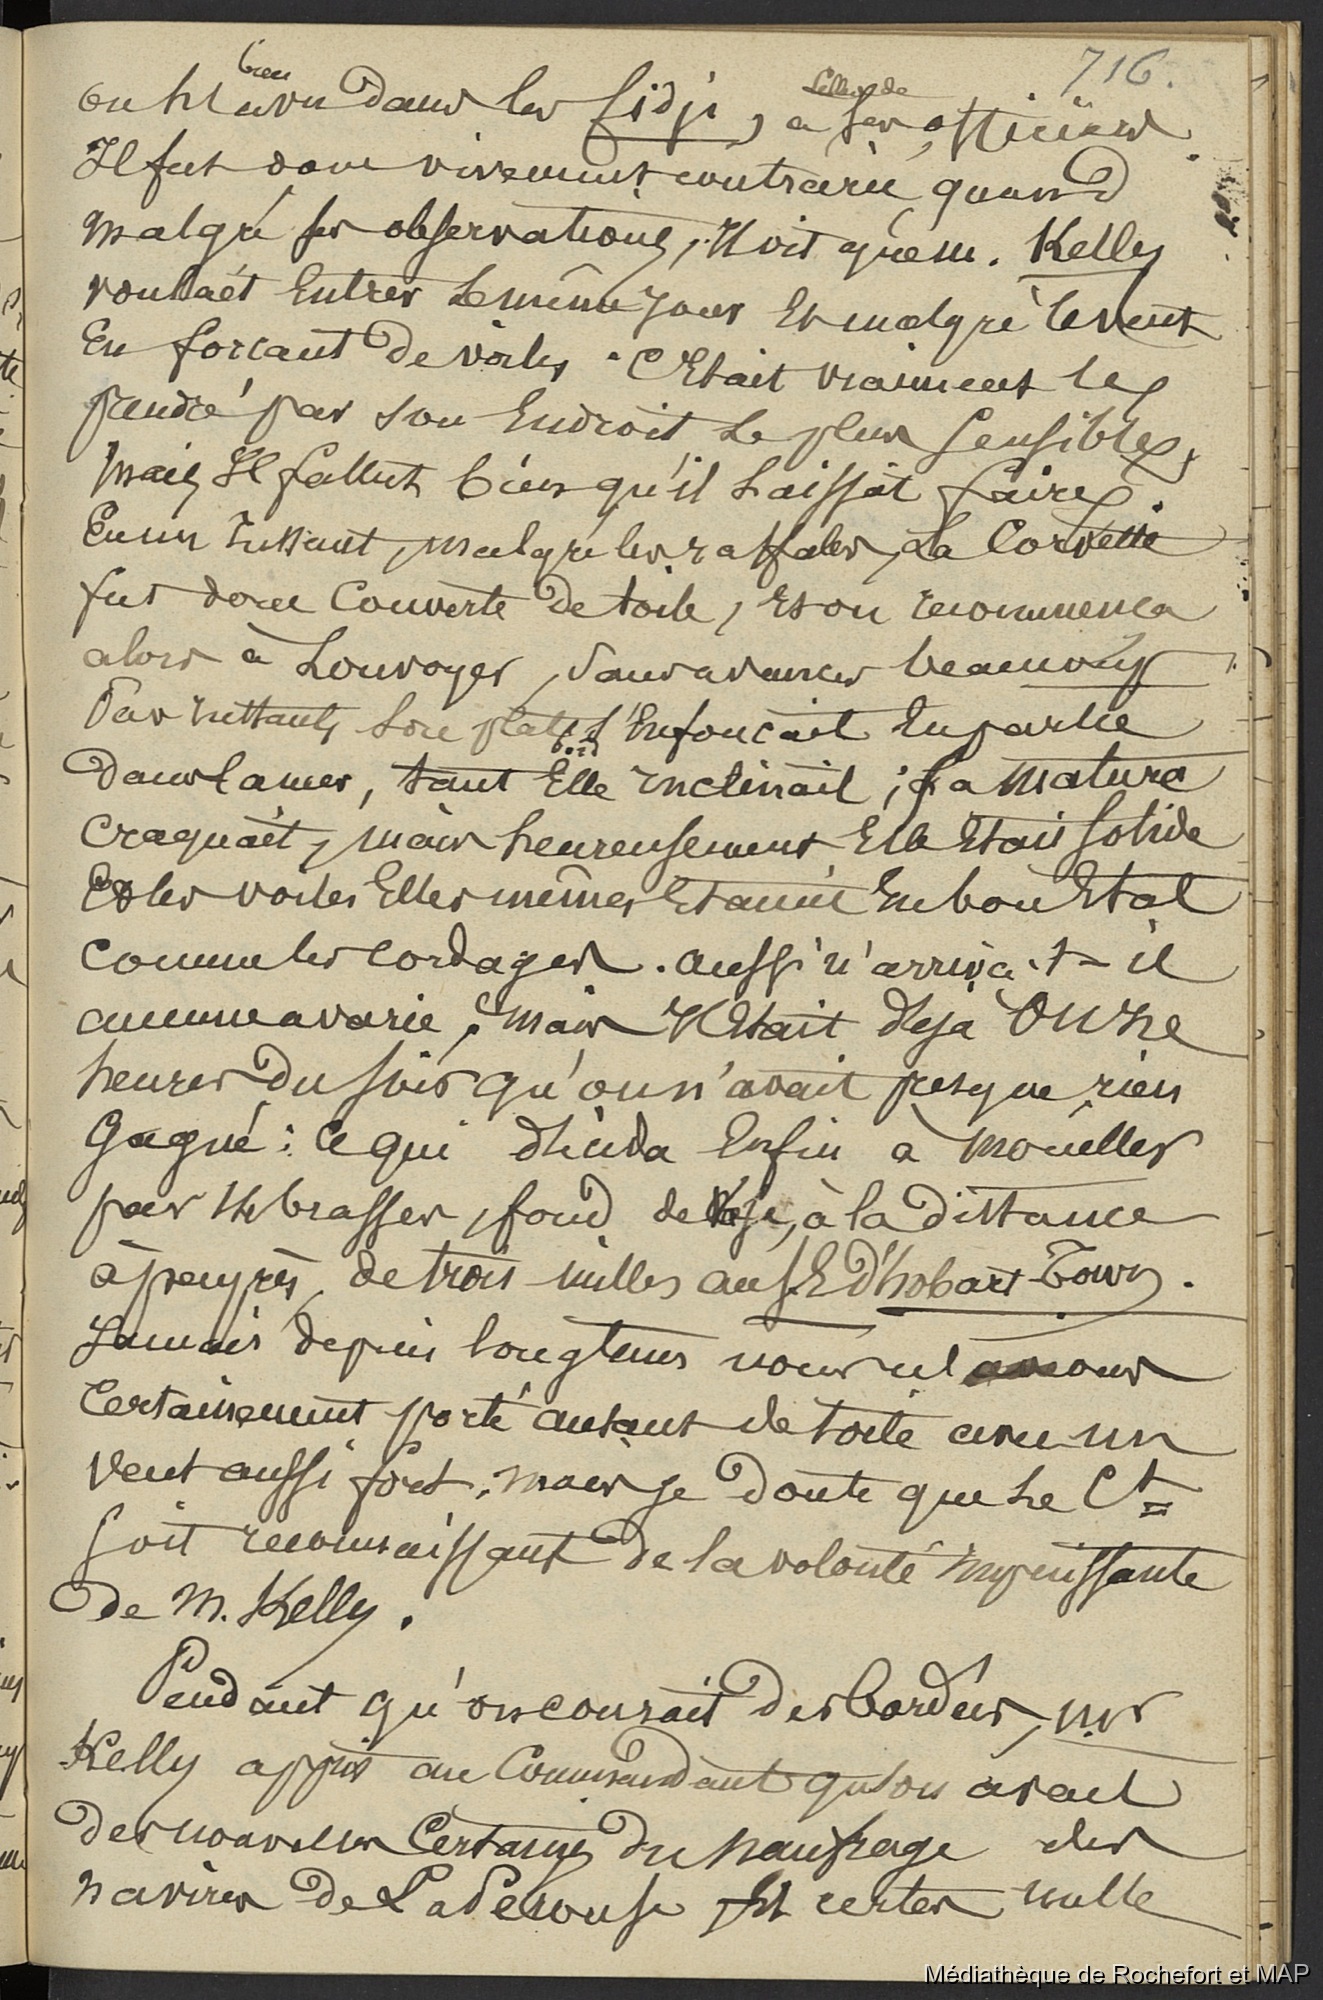 716.
on l'a bien vu dans les fidji, à celles de ses officiers.
Il fut donc vivement contrarié quand
malgré ses observations, Il vit que m. Kelly
voulait Entrer le même jour Et malgré le vent
En forcant de voiles. C'Etait vraiment le
prendre par son Endroit le plus sensible,
mais Il fallut bien qu'il laissat faire.
En un Instant, malgré les raffales, La Corvette
fut donc Couverte de toile, Et on recommenca
alors à Louvoyer, sans avancer beaucoup.
Par Instants, son plat bord s'Enfoncait En partie
dans la mer, tant Elle Inclinait; sa mature
craquait, mais heureusement Elle Etait solide
Et les voiles Elles mêmes Etaient En bon Etat
comme les cordages. aussi n'arriva-t-il
aucune avarie; mais Il Etait deja Onze
heures du soir qu'on n'avait presque rien
Gagné: ce qui décida Enfin à mouiller
par brasses, fond de Vase, à la distance
à peu près, de trois milles au S.E d'hobart-Town.
Jamais depuis longtems nous n'avons
Certainement porté autant de toile avec un
Vent aussi fort; mais je doute que Le Ct
soit reconnaissant de la volonté Impuissante
de M. Kelly.
Pendant qu'on courait des bordées, Mr
Kelly apprit au Commandant qu'on avait
des nouvelles Certaines du naufrage des
navires de La Pérouse, Et certes nulle
Médiathèque de Rochefort et MAP